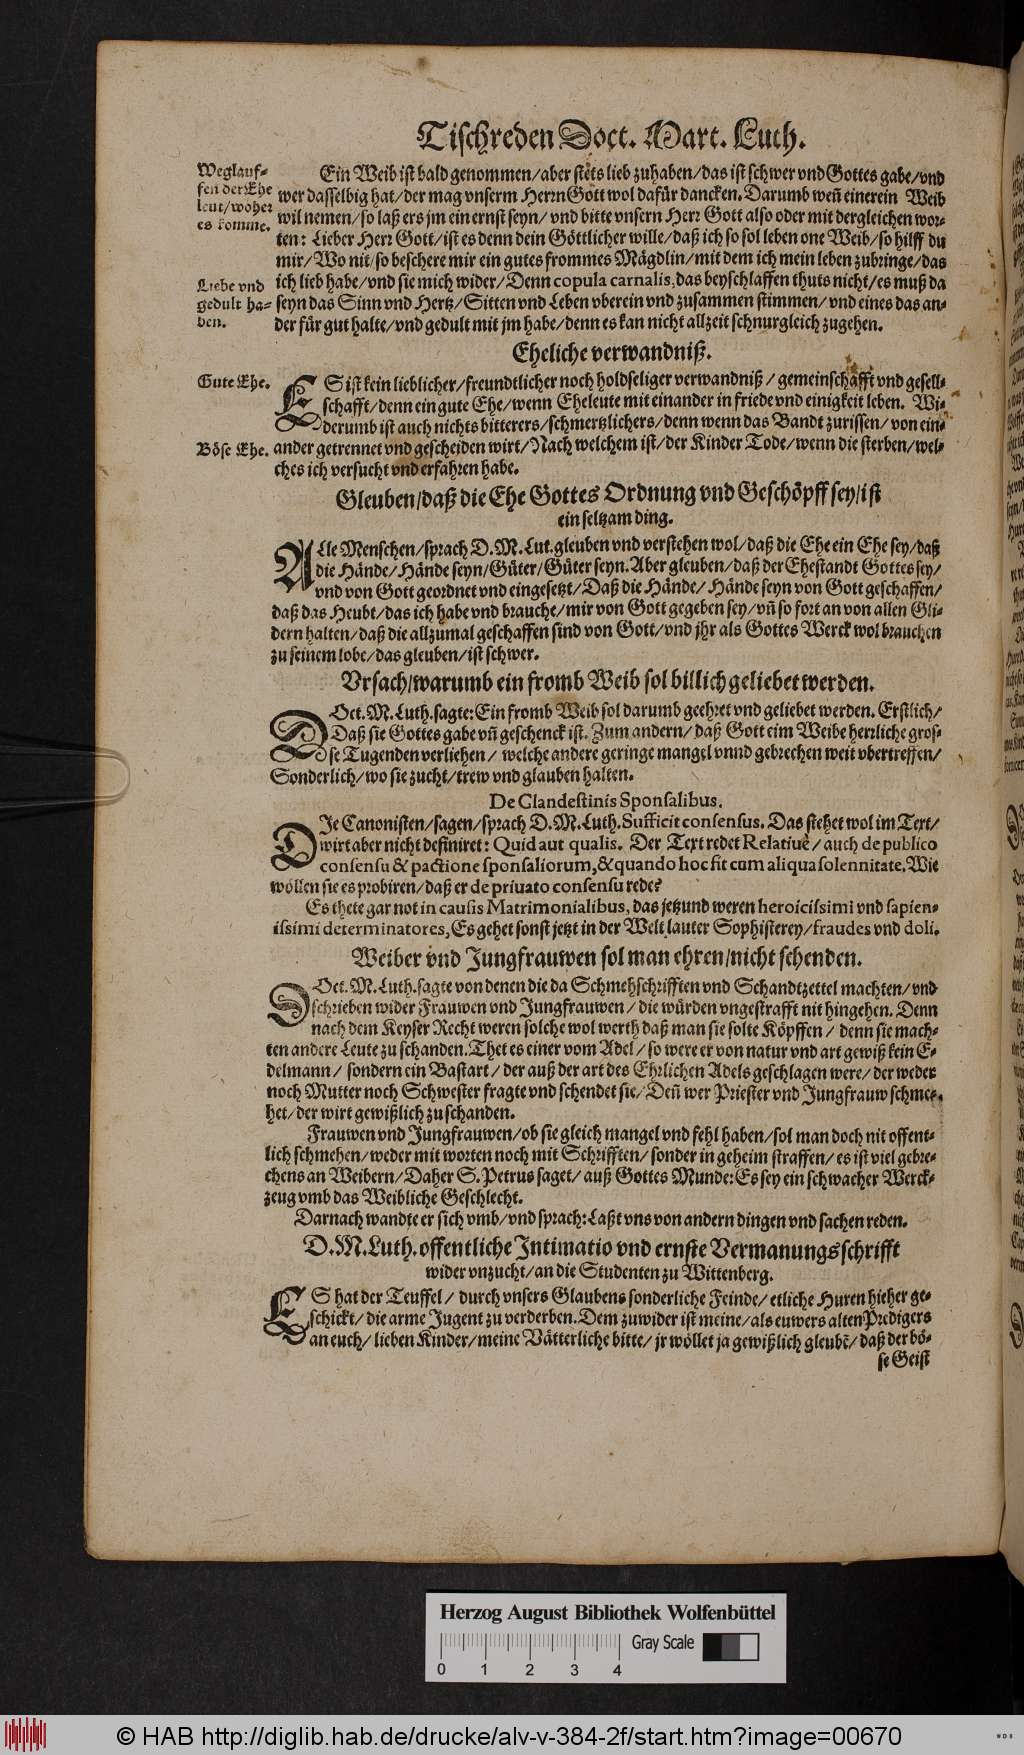 Tischreden Doct. Mart. Luth.
Weglauf-
fen der Ehe
leut/woher
es komme.
Ein Weib ist bald genommen/aber stets lieb zuhaben/das ist schwer vnd Gottes gabe/vnd
wer dasselbig hat/der mag vnserm HerrnGott wol dafür dancken. Darumb weñ einerein Weib
wil nemen/so laß ers jm ein ernst seyn/ vnd bitte vnsern Herr Gott also oder mit dergleichen wor-
ten: Lieber Herr Gott/ist es denn dein Göttlicher wille/daß ich so sol leben one Weib/so hilff du
mir/Wo nit/so beschere mir ein gutes frommes Mägdlin/mit dem ich mein leben zubringe/das
Liebe vnd
gedult ha-
ben.
ich lieb habe/vnd sie mich wider/Denn copula carnalis, das beyschlaffen thuts nicht/es muß da
seyn das Sinn vnd Hertz/Sitten vnd Leben vberein vnd zusammen stimmen/vnd eines das an-
der für gut halte/vnd gedult mit jm habe/denn es kan nicht allzeit schnurgleich zugehen.
Eheliche verwandniß.
Gute Ehe.
ES ist kein lieblicher/freundtlicher noch holdseliger verwandniß/ gemeinschafft vnd gesell-
schafft/denn ein gute Ehe/wenn Eheleute mit einander in friede vnd einigkeit leben. Wi-
derumb ist auch nichts bitterers/schmertzlichers/denn wenn das Bandt zurissen/von ein-
Böse Ehe.
ander getrennet vnd gescheiden wirt/Nach welchem ist/der Kinder Tode/wenn die sterben/wel-
ches ich versucht vnd erfahren habe.
Gleuben/daß die Ehe Gottes Ordnung vnd Geschöpff sey/ist
ein seltzam ding.
ALle Menschen/sprach D.M.Lut.gleuben vnd verstehen wol/daß die Ehe ein Ehe sey/daß
die Hände/Hände seyn/Güter/Güter seyn. Aber gleuben/daß der Ehestandt Gottes sey/
vnd von Gott geordnet vnd eingesetzt/Daß die Hände/ Hände seyn von Gott geschaffen/
daß das Heubt/das ich habe vnd brauche/mir von Gott gegeben sey/vñ so fort an von allen Gli-
dern halten/daß die allzumal geschaffen sind von Gott/vnd jhr als Gottes Werck wol brauchen
zu seinem lobe/das gleuben/ist schwer.
Vrsach/warumb ein fromb Weib sol billich geliebet werden.
DOct. M. Luth. sagte: Ein fromb Weib sol darumb geehret vnd geliebet werden. Erstlich/
Daß sie Gottes gabe vñ geschenck ist. Zum andern/ daß Gott eim Weibe herrliche gros-
se Tugenden verliehen/ welche andere geringe mangel vnnd gebrechen weit vbertreffen/
Sonderlich/wo sie zucht/trew vnd glauben halten.
De Clandestinis Sponsalibus.
DJe Canonisten/sagen/sprach D.M.Luth. Sufficit consensus. Das stehet wol im Text/
wirt aber nicht definiret: Quid aut qualis. Der Text redet Relatiuè/ auch de publico
consensu & pactione sponsaliorum, & quando hoc fit cum aliqua solennitate. Wie
wöllen sie es probiren/daß er de priuato consensu rede?
Es thete gar not in causis Matrimonialibus, das jetzund weren heroicissimi vnd sapien-
issimi determinatores, Es gehet sonst jetzt in der Welt lauter Sophisterey/fraudes vnd doli.
Weiber vnd Jungfrauwen sol man ehren/nicht schenden.
DOct. M. Luth. sagte von denen die da Schmehschrifften vnd Schandtzettel machten/vnd
schrieben wider Frauwen vnd Jungfrauwen/ die würden vngestrafft nit hingehen. Denn
nach dem Keyser Recht weren solche wol werth daß man sie solte Köpffen/ denn sie mach-
ten andere Leute zu schanden. Thet es einer vom Adel/ so were er von natur vnd art gewiß kein E-
delmann/ sondern ein Bastart/ der auß der art des Ehrlichen Adels geschlagen were/ der weder
noch Mutter noch Schwester fragte vnd schendet sie/ Deñ wer Priester vnd Jungfrauw schme-
het/der wirt gewißlich zu schanden.
Frauwen vnd Jungfrauwen/ob sie gleich mangel vnd fehl haben/sol man doch nit offent-
lich schmehen/weder mit worten noch mit Schrifften/ sonder in geheim straffen/ es ist viel gebre-
chens an Weibern/Daher S. Petrus saget/ auß Gottes Munde: Es sey ein schwacher Werck-
zeug vmb das Weibliche Geschlecht.
Darnach wandte er sich vmb/vnd sprach: Laßt vns von andern dingen vnd sachen reden.
D.M.Luth. offentliche Intimatio vnd ernste Vermanungsschrifft
wider vnzucht/an die Studenten zu Wittenberg.
ES hat der Teuffel/ durch vnsers Glaubens sonderliche Feinde/ etliche Huren hieher ge-
schickt/die arme Jugent zu verderben. Dem zuwider ist meine/als euwers alten Predigers
an euch/ lieben Kinder/meine Vätterliche bitte/ jr wöllet ja gewißlich gleubē/ daß der bö-
se Geist
Herzog August Bibliothek Wolfenbüttel
Gray Scale
0 1 2 3 4
© HAB http://diglib.hab.de/drucke/alv-v-384-2f/start.htm?image=00670